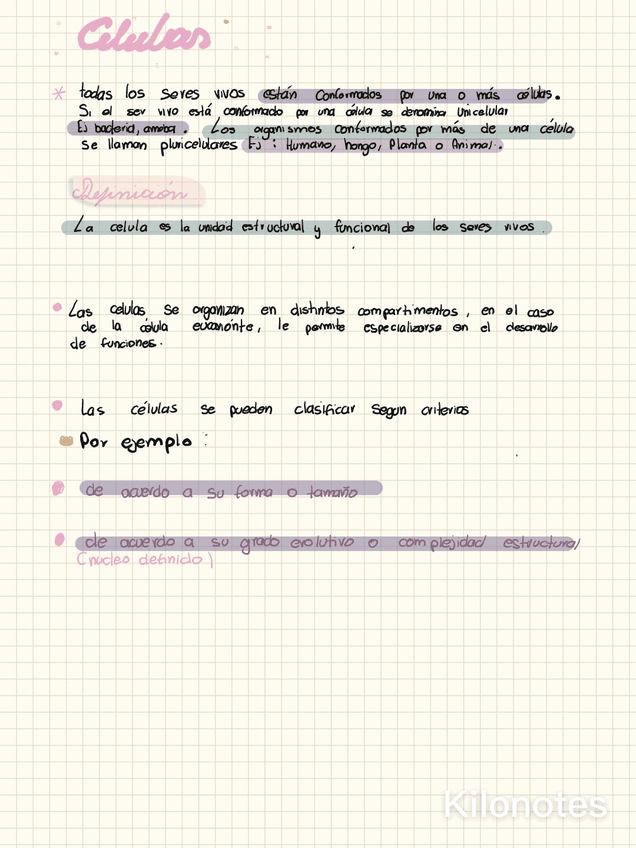 Células
* todas los seres vivos están conformados por una o más células.
Si el ser vivo está conformado por una célula se denomina Unicelular
Ej bacteria, ameba. Los organismos conformados por más de una célula
se llaman pluricelulares Ej: Humano, hongo, Planta o Animal.
Definición
La celula es la unidad estructural y funcional de los seres vivos.
Las celulas se organizan en distintos compartimentos, en el caso
de la célula eucarionte, le permite especializarse en el desarrollo
de funciones.
Las células se pueden clasificar segun criterios
Por ejemplo:
de acuerdo a su forma o tamaño
de acuerdo a su grado evolutivo o complejidad estructural
(nucleo definido)
Kilonotes